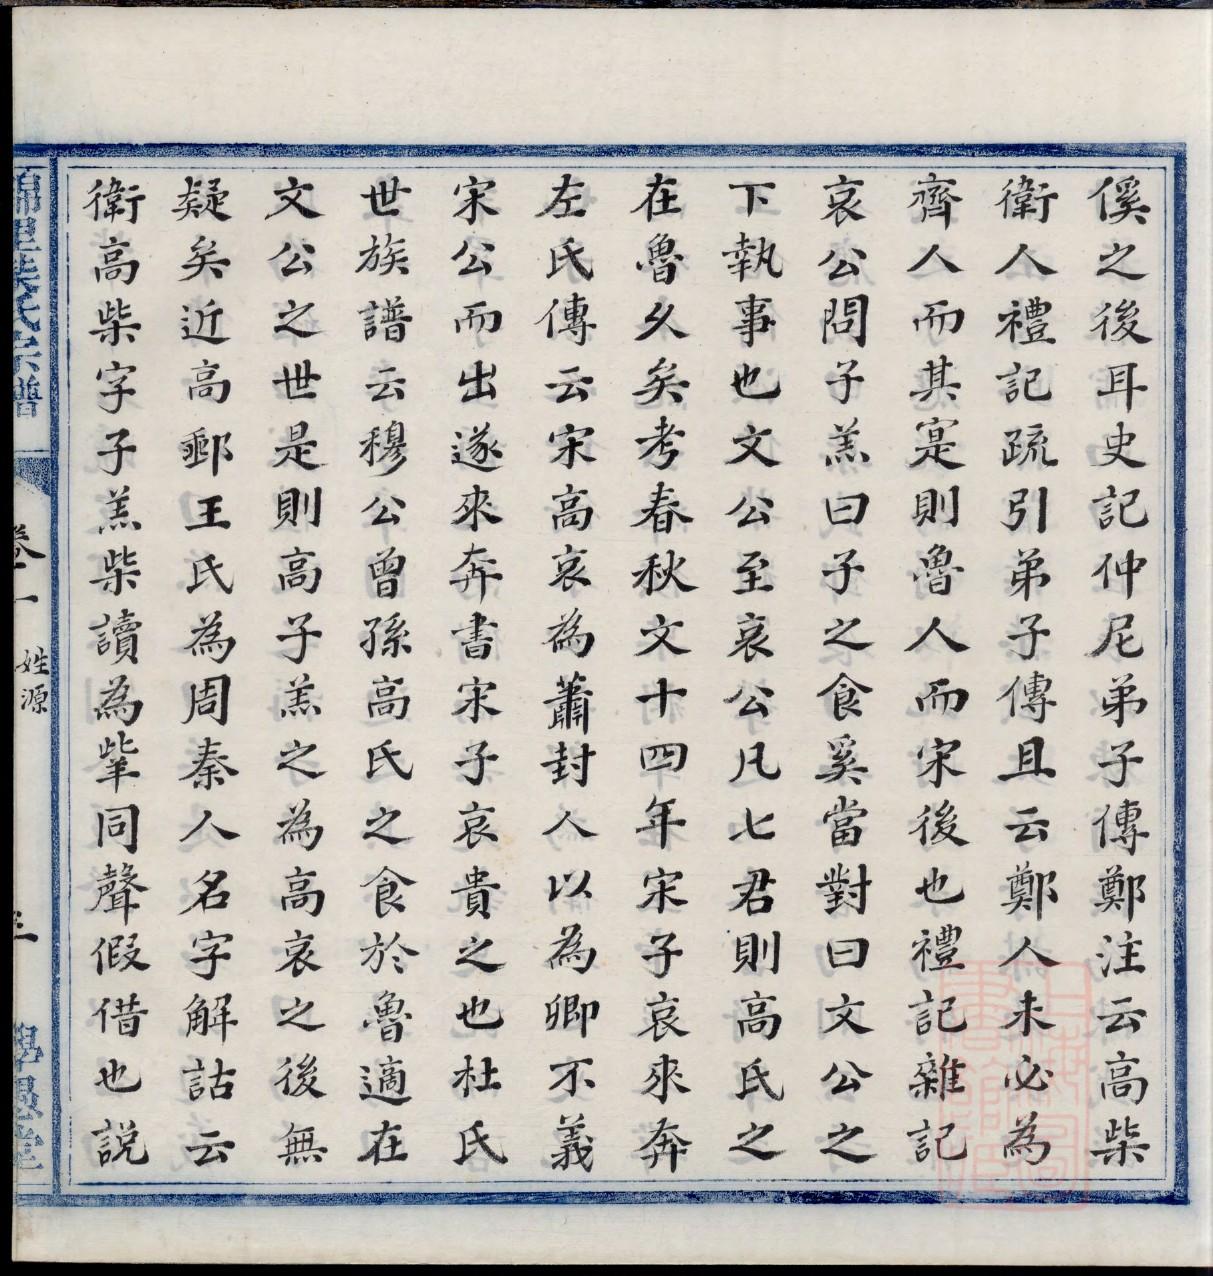 傒之後耳史記仲尼弟子傳鄭注云高柴
衛人禮記疏引弟子傳且云鄭人未必為
齊人而其寔則魯人而宋後也禮記雜記
哀公問子羔曰子之食奚當對曰文公之
下執事也文公至哀公凡七君則高氏之
在魯久矣考春秋文十四年宋子哀來奔
左氏傳云宋高哀為蕭封人以為卿不義
宋公而出遂來奔書宋子哀貴之也杜氏
世族譜云穆公曾孫高氏之食於魯適在
文公之世是則高子羔之為高哀之後無
疑矣近高郵王氏為周秦人名字解詁云
衛高柴字子羔柴讀為㧘同聲假借也説
卷一
姓源
三